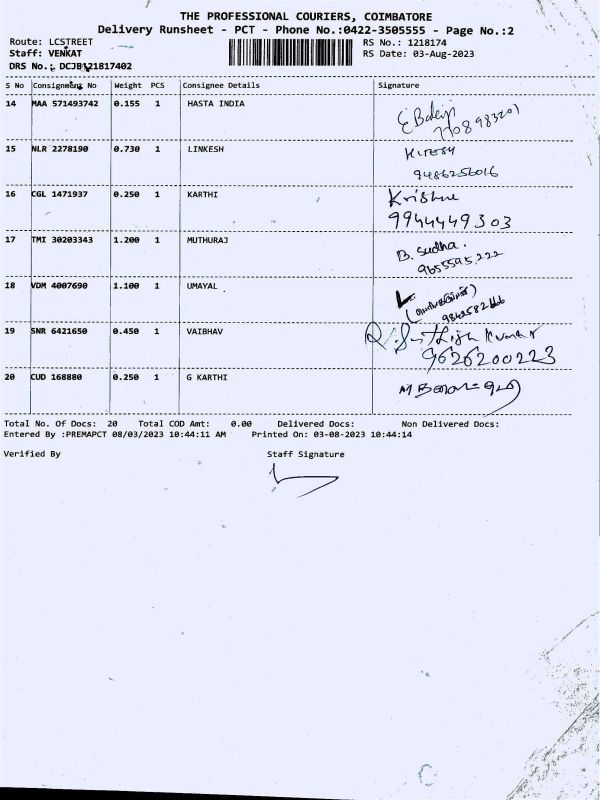 THE PROFESSIONAL COURIERS, COIMBATORE
Delivery Runsheet - PCT - Phone No.:0422-3505555 - Page No.:2
Route: LCSTREET
Staff: VENKAT
DRS No.: DCJB121817402
RS No.: 1218174
RS Date: 03-Aug-2023
S No Consignment No Weight PCS Consignee Details Signature
14 MAA 571493742 0.155 1 HASTA INDIA
15 NLR 2278190 0.730 1 LINKESH
9486256016
16 CGL 1471937 0.250 1 KARTHI Krishne
9944449303
17 TMI 30203343 1.200 1 MUTHURAJ B. Sudha.
9655595222
18 VDM 4007690 1.100 1 UMAYAL
19 SNR 6421650 0.450 1 VAIBHAV
9626200223
20 CUD 168880 0.250 1 G KARTHI
Total No. Of Docs: 20 Total COD Amt: 0.00 Delivered Docs: Non Delivered Docs:
Entered By :PREMAPCT 08/03/2023 10:44:11 AM Printed On: 03-08-2023 10:44:14
Verified By Staff Signature